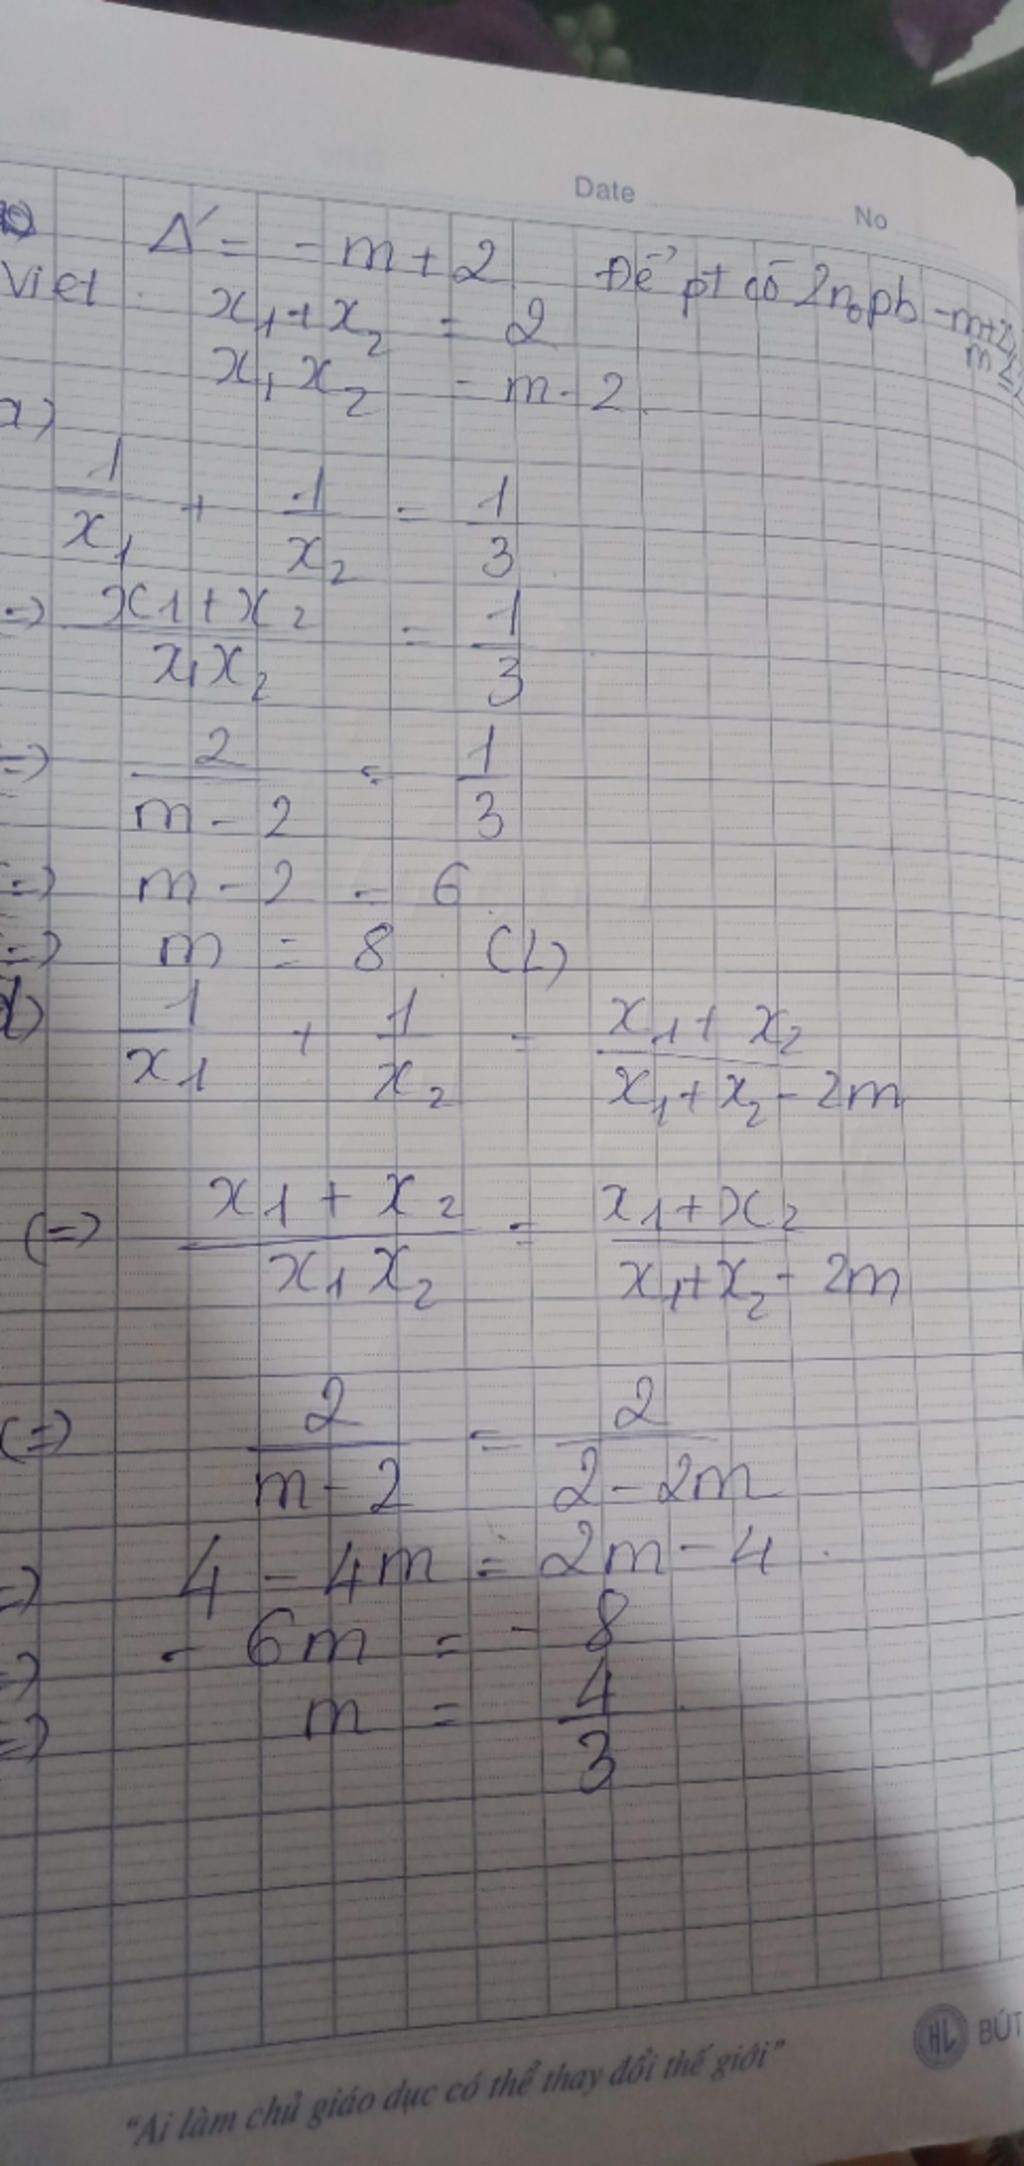 Date No
Δ' = - m + 2 Để pt có 2 n₀ pb -m+2
Viet x₁ + x₂ = 2 m ≤
x₁ x₂ = m - 2
a)
1/x₁ + 1/x₂ = 1/3
=) (x₁ + x₂)/(x₁x₂) = 1/3
=) 2/(m - 2) = 1/3
=) m - 2 = 6
=) m = 8 (L)
d) 1/x₁ + 1/x₂ = (x₁ + x₂)/(x₁ + x₂ - 2m)
(=) (x₁ + x₂)/(x₁ x₂) = (x₁ + x₂)/(x₁ + x₂ - 2m)
(=) 2/(m - 2) = 2/(2 - 2m)
=) 4 - 4m = 2m - 4
=) - 6m = - 8
=) m = 4/3
HL BÚT
"Ai làm chủ giáo dục có thể thay đổi thế giới"